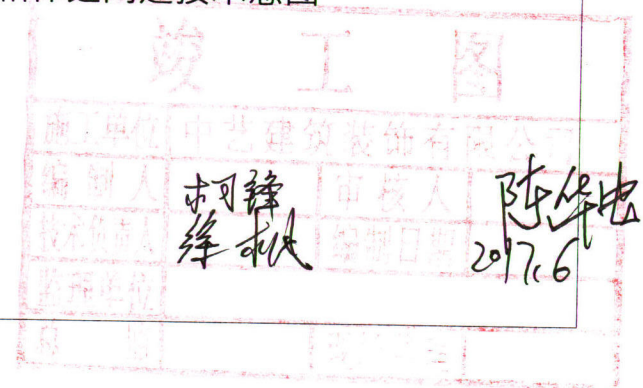 竣工图
施工单位 中艺建筑装饰有限公司
编制人 柯锋 审核人 陈华忠
技术负责人 徐彬 编制日期 2017.6
监理单位